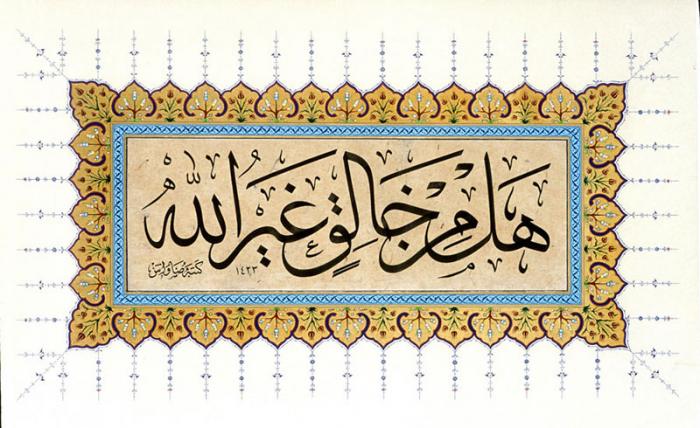 هَلْ مِنْ خَالِقٍ غَيْرُ اللّٰهِ
كتبه
١٤٢٣